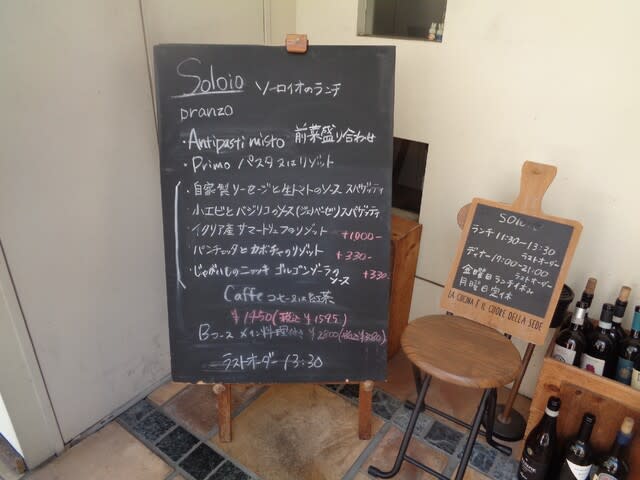 Soloio ソーロイオのランチ
pranzo
・Antipasti misto 前菜盛り合わせ
・Primo パスタ又はリゾット
・自家製ソーセージと生トマトのソース スパゲッティ
小エビとバジリコのソース(ジェノベーゼ)スパゲッティ
イタリア産サマートリュフのリゾット +1,000-
・パンチェッタとカボチャのリゾット +330-
・じゃがいものニョッキ ゴルゴンゾーラのソース +330-
Caffe コーヒー又は紅茶
¥1450(税込¥1595)
Bコース メイン料理付き ¥2800(税込¥3080)
ラストオーダー 13:30
ランチ 11:30-13:30
ラストオーダー
ディナー 17:00-21:00
ラストオーダー
金曜日ランチ休み
月曜日定休
LA CUCINA È IL CUORE DELLA SEDE